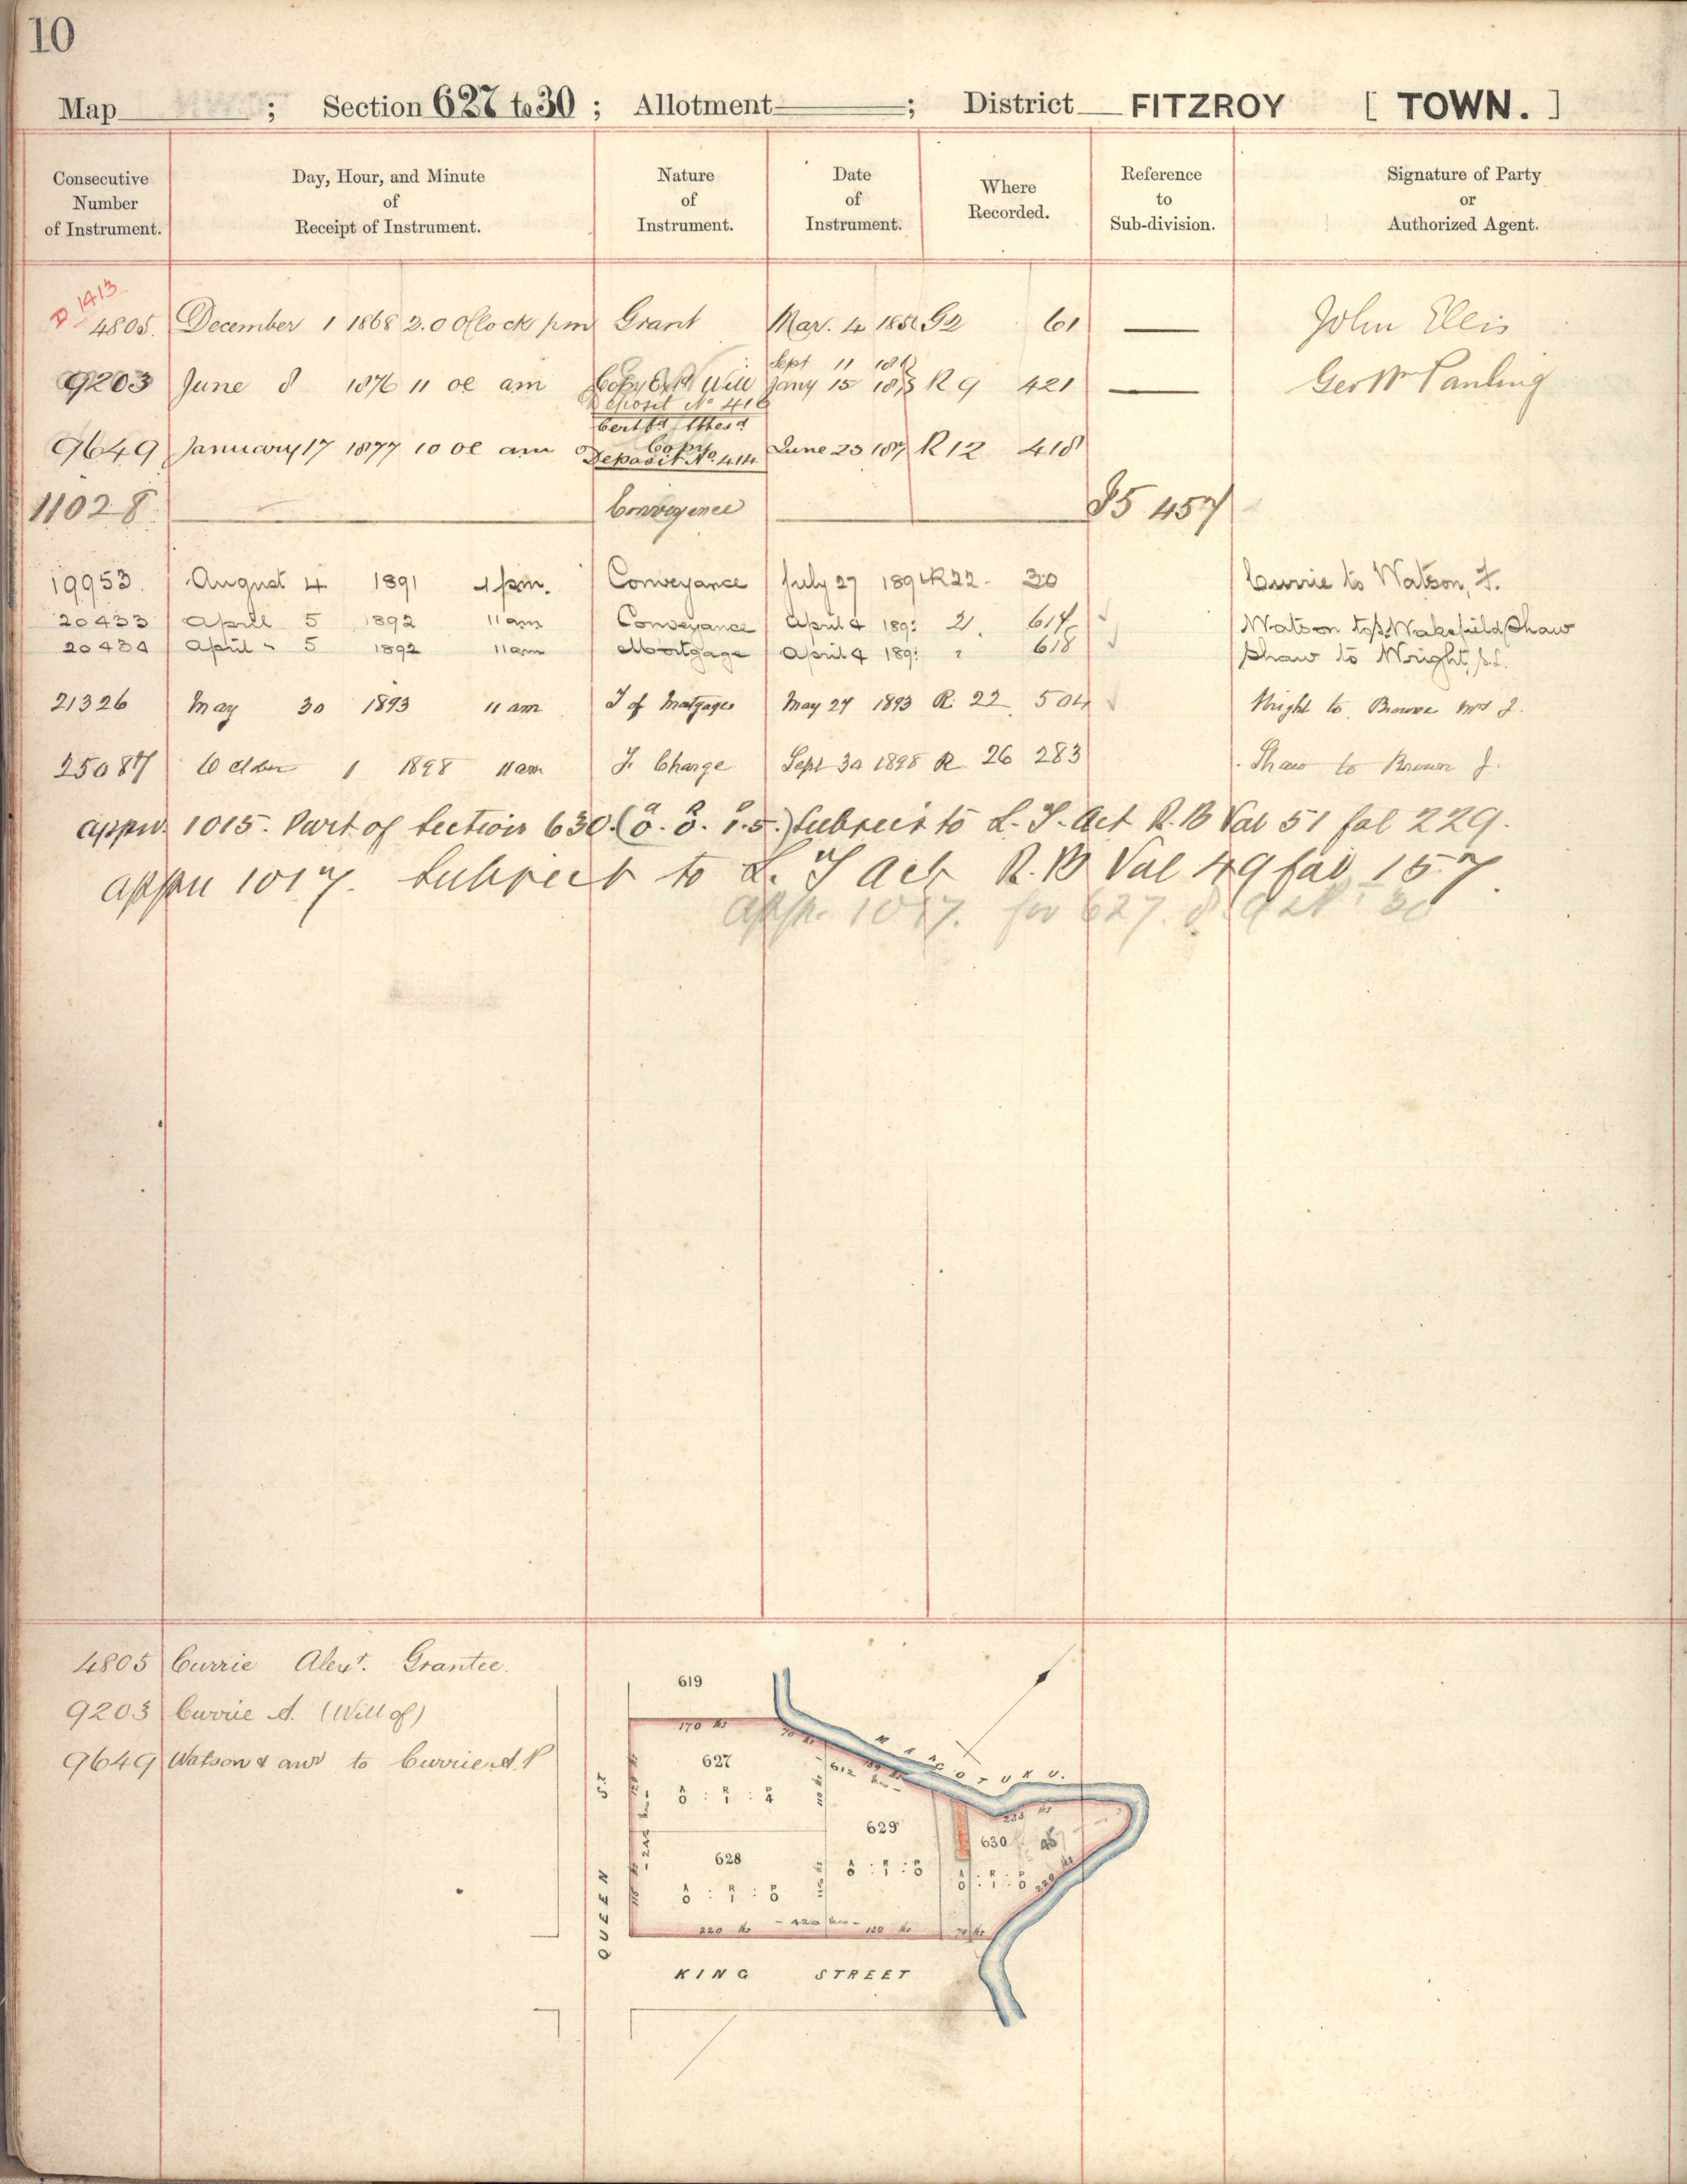 10
Map ; Section 627 to 30 ; Allotment ; District FITZROY [ TOWN. ]
Consecutive Number of Instrument. Day, Hour, and Minute of Receipt of Instrument. Nature of Instrument. Date of Instrument. Where Recorded. Reference to Sub-division. Signature of Party or Authorized Agent.
D 1413
4805. December 1 1868 2.0 OClock pm Grant Mar. 4 185 G2 61 John Ellis
Sept 11 186
9203 June 8 1876 11 oc am Copy Will Jany 15 1873 R 9 421 Geo Wm Panling
Deposit No 416
Certfd
9649 January 17 1877 10 oc am Copy June 23 187 R 12 418
Deposit No. 414
11028 Conveyance 457
19953. August 4 1891 1 pm. Conveyance July 27 1891 R22 - 30 Currie to Watson, F.
20433 April 5 1892 11 am Conveyance April 4 189 21. 614 Watson to Wakefield Shaw
20434 April " 5 1892 11 am Mortgage April 4 189 " 618 Shaw to Wright, J.L.
21326 May 30 1893 11 am T of Mortgage May 27 1893 R. 22 504 Wright to Browne Mrs J.
25087 October 1 1898 11 am F. Charge Sept 30 1898 R 26 283 Shaw to Brown J.
appn. 1015. Part of Section 630. (0. 0. 1.5.) Subject to L. T. Act R. B Vol 51 fol 229.
appn 1017. Subject to L. T Act R. B Vol 49 fol 157.
appn. 1017. for 627. 8. 9 & Pt 30
4805 Currie Alexr. Grantee.
9203 Currie A. (Will of)
9649 Watson & anr to Currie A. P
619
170 lks 70 lks
MAAGOTUKU.
627
A R P
0 : 1 : 4
612 lks
629
A R P
0 : 1 : 0
630
A R P
0 : 1 : 0
235 lks
220 lks
628
A R P
0 : 1 : 0
220 lks - 420 lks - 130 lks 70 lks
QUEEN ST
KING STREET